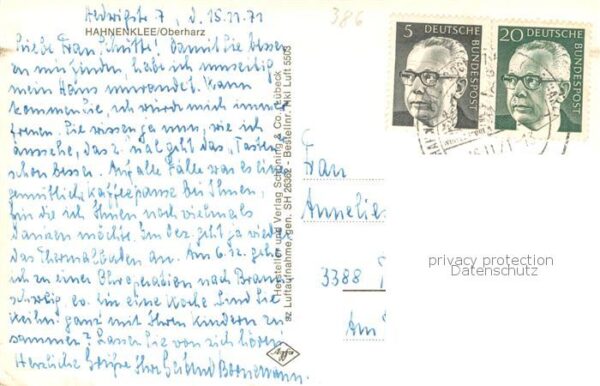 Hedwigstr 7, d. 15.11.71
386
HAHNENKLEE/Oberharz
Liebe Frau Schütte! Damit Sie besser
zu mir finden, habe ich umseitig
mein Haus umrandet. Wann
kommen Sie, ich würde mich immer
freuen. Sie wissen ja nun, wie ich
aussehe, das 2. mal geht das "Tasten"
schon besser. Auf alle Fälle war es eine
gemütliche Kaffeepause bei Ihnen,
für die ich Ihnen noch vielmals
danken möchte. Im Dez. geht ja wieder
das Thermalbaden an. Am 6.12. gehe
ich zu einer Ohroperation nach Braun-
schweig, ca. eine Woche. Sind Sie
Weihn. ganz mit Ihren Kindern zu-
sammen? Lassen Sie von sich hören!
Herzliche Grüße Ihre
Hersteller und Verlag Schöning & Co., Lübeck
sz Luftaufnahme, gen. SH 26362 - Bestellnr. Hkl Luft 5503
5 DEUTSCHE BUNDESPOST
20 DEUTSCHE BUNDESPOST
Frau
Annelie
3388
Am
privacy protection
Datenschutz